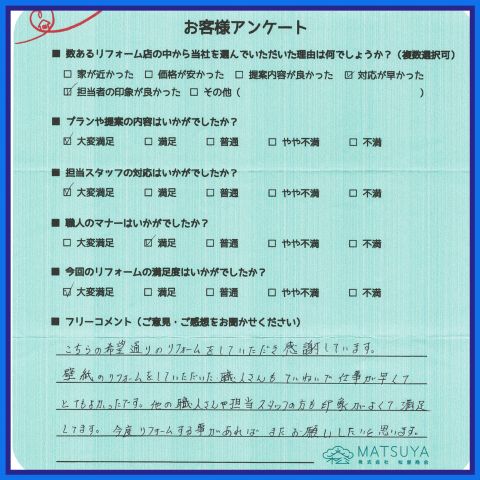 お客様アンケート
■ 数あるリフォーム店の中から当社を選んでいただいた理由は何でしょうか?（複数選択可）
□ 家が近かった □ 価格が安かった □ 提案内容が良かった ☑ 対応が早かった
☑ 担当者の印象が良かった □ その他（ ）
■ プランや提案の内容はいかがでしたか？
☑ 大変満足 □ 満足 □ 普通 □ やや不満 □ 不満
■ 担当スタッフの対応はいかがでしたか？
☑ 大変満足 □ 満足 □ 普通 □ やや不満 □ 不満
■ 職人のマナーはいかがでしたか？
□ 大変満足 ☑ 満足 □ 普通 □ やや不満 □ 不満
■ 今回のリフォームの満足度はいかがでしたか？
☑ 大変満足 □ 満足 □ 普通 □ やや不満 □ 不満
■ フリーコメント（ご意見・ご感想をお聞かせください）
こちらの希望通りのリフォームをしていただき感謝しています。
壁紙のリフォームをしていただいた職人さんもていねいで仕事が早くて
とてもよかったです。他の職人さんや担当スタッフの方も印象がよくて満足
してます。今度リフォームする事があればまたお願いしたいと思います。
MATSUYA
株式会社 松屋商会